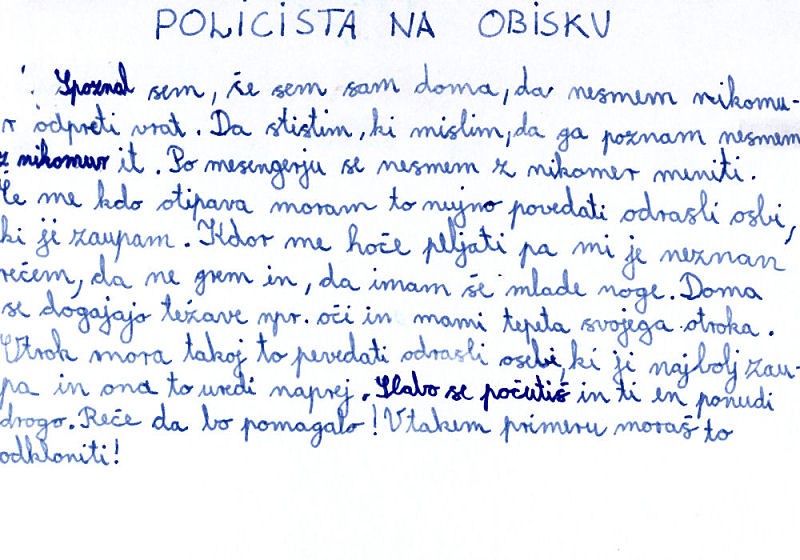 POLICISTA NA OBISKU
Spoznal sem, če sem sam doma, da nesmem nikomu-
r odpreti vrat. Da stistim, ki mislim, da ga poznam nesmem
z nikomur it. Po mesengerju se nesmem z nikomer meniti.
Če me kdo otipava moram to nujno povedati odrasli osbi,
ki ji zaupam. Kdor me hoče peljati pa mi je neznan
rečem, da ne grem in, da imam še mlade noge. Doma
se dogajajo težave npr. oči in mami tepeta svojega otroka.
Otrok mora takoj to povedati odrasli osebi, ki ji najbolj zau-
pa in ona to uredi naprej. Slabo se počutiš in ti en ponudi
drogo. Reče da bo pomagalo! V takem primeru moraš to
odkloniti!